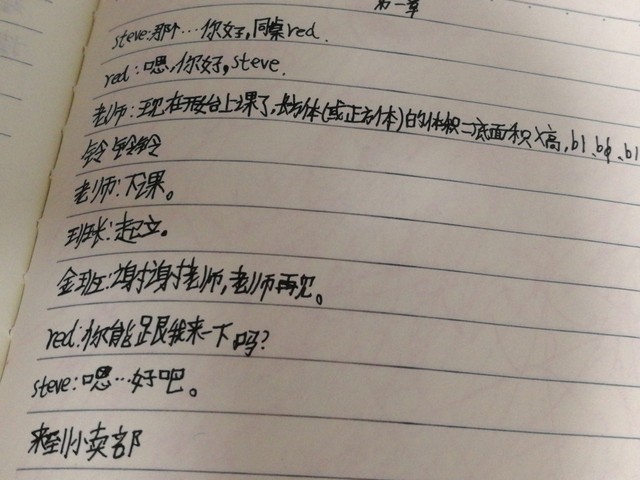 第一章
steve:那个…你好,同桌red.
red:嗯,你好,steve.
老师:现在开始上课了,长方体(或正方体)的体积=底面积×高,bl、bφ、bl
铃铃铃
老师:下课。
班长:起立。
全班:谢谢老师,老师再见。
red:你能跟我来一下吗?
steve:嗯…好吧。
来到小卖部